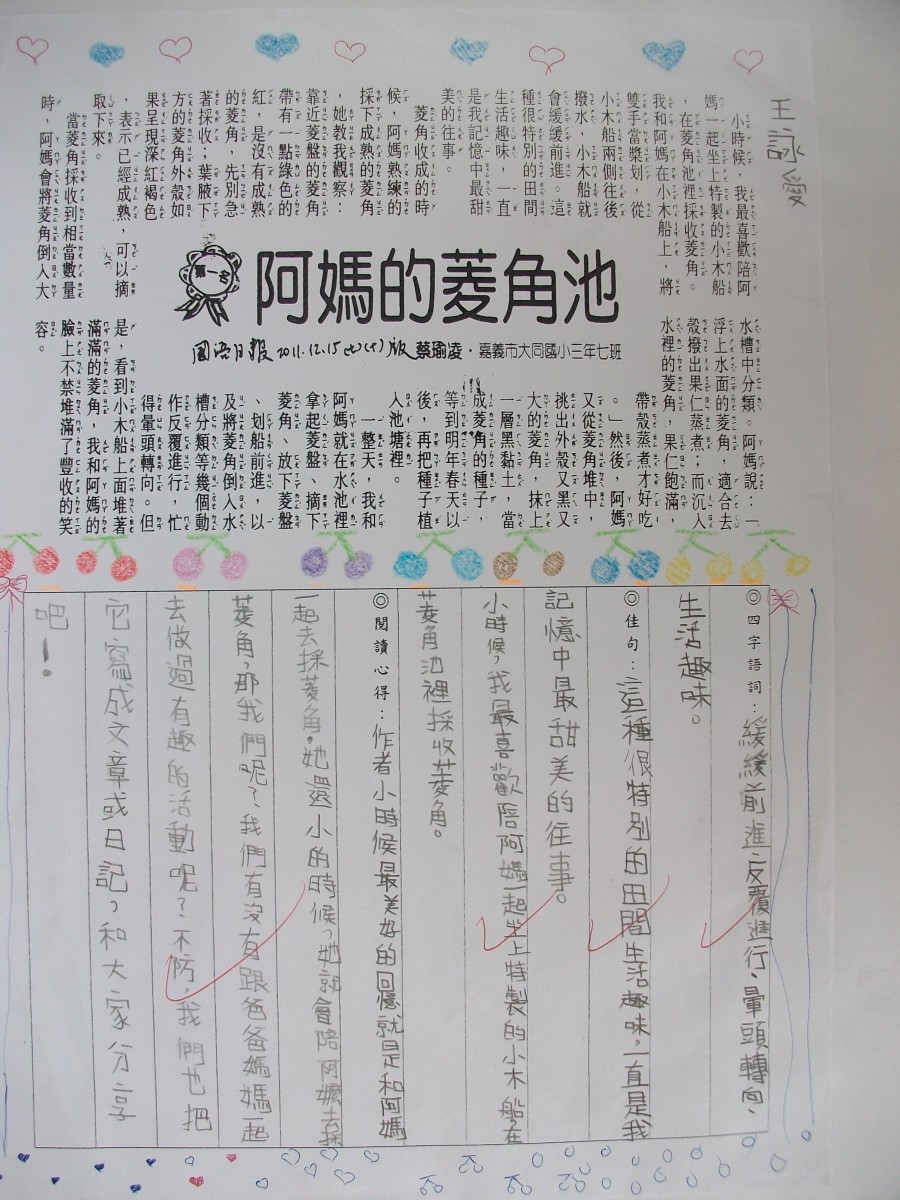 王詠愛
小時候，我最喜歡陪阿
媽一起坐上特製的小木船
，在菱角池裡採收菱角。
我和阿媽在小木船上，將
雙手當槳划，從
小木船兩側往後
撥水，小木船就
會緩緩前進。這
種很特別的田間
生活趣味，一直
是我記憶中最甜
美的往事。
菱角收成的時
候，阿媽熟練的
採下成熟的菱角
，她教我觀察：
靠近菱盤的菱角
帶有一點綠色的
紅，是沒有成熟
的菱角，先別急
著採收；葉腋下
方的菱角外殼如
果呈現深紅褐色
，表示已經成熟，可以摘
取下來。
當菱角採收到相當數量
時，阿媽會將菱角倒入大
第一名
阿媽的菱角池
國語日報 2011.12.15(七)版 蔡瑜凌・嘉義市大同國小三年七班
水槽中分類。阿媽說：「
浮上水面的菱角，適合去
殼撥出果仁蒸煮；而沉入
水裡的菱角，果仁飽滿，
帶殼蒸煮才好吃
。」然後，阿媽
又從菱角堆中，
挑出外殼又黑又
大的菱角，抹上
一層黑黏土，當
成菱角的種子，
等到明年春天以
後，再把種子植
入池塘裡。
一整天，我和
阿媽就在水池裡
拿起菱盤、摘下
菱角、放下菱盤
、划船前進，以
及將菱角倒入水
槽分類等幾個動
作反覆進行，忙
得暈頭轉向。但
是，看到小木船上面堆著
滿滿的菱角，我和阿媽的
臉上不禁堆滿了豐收的笑
容。
◎四字語詞：緩緩前進、反覆進行、暈頭轉向、
生活趣味。
◎佳句：這種很特別的田間生活趣味，一直是我
記憶中最甜美的往事。
小時候，我最喜歡陪阿媽一起坐上特製的小木船，在
菱角池裡採收菱角。
◎閱讀心得：作者小時候最美好的回憶就是和阿媽
一起去採菱角，她還小的時候，她就會陪阿媽去採
菱角，那我們呢？我們有沒有跟爸爸媽媽一起
去做過有趣的活動呢？不防，我們也把
它寫成文章或日記，和大家分享
吧！